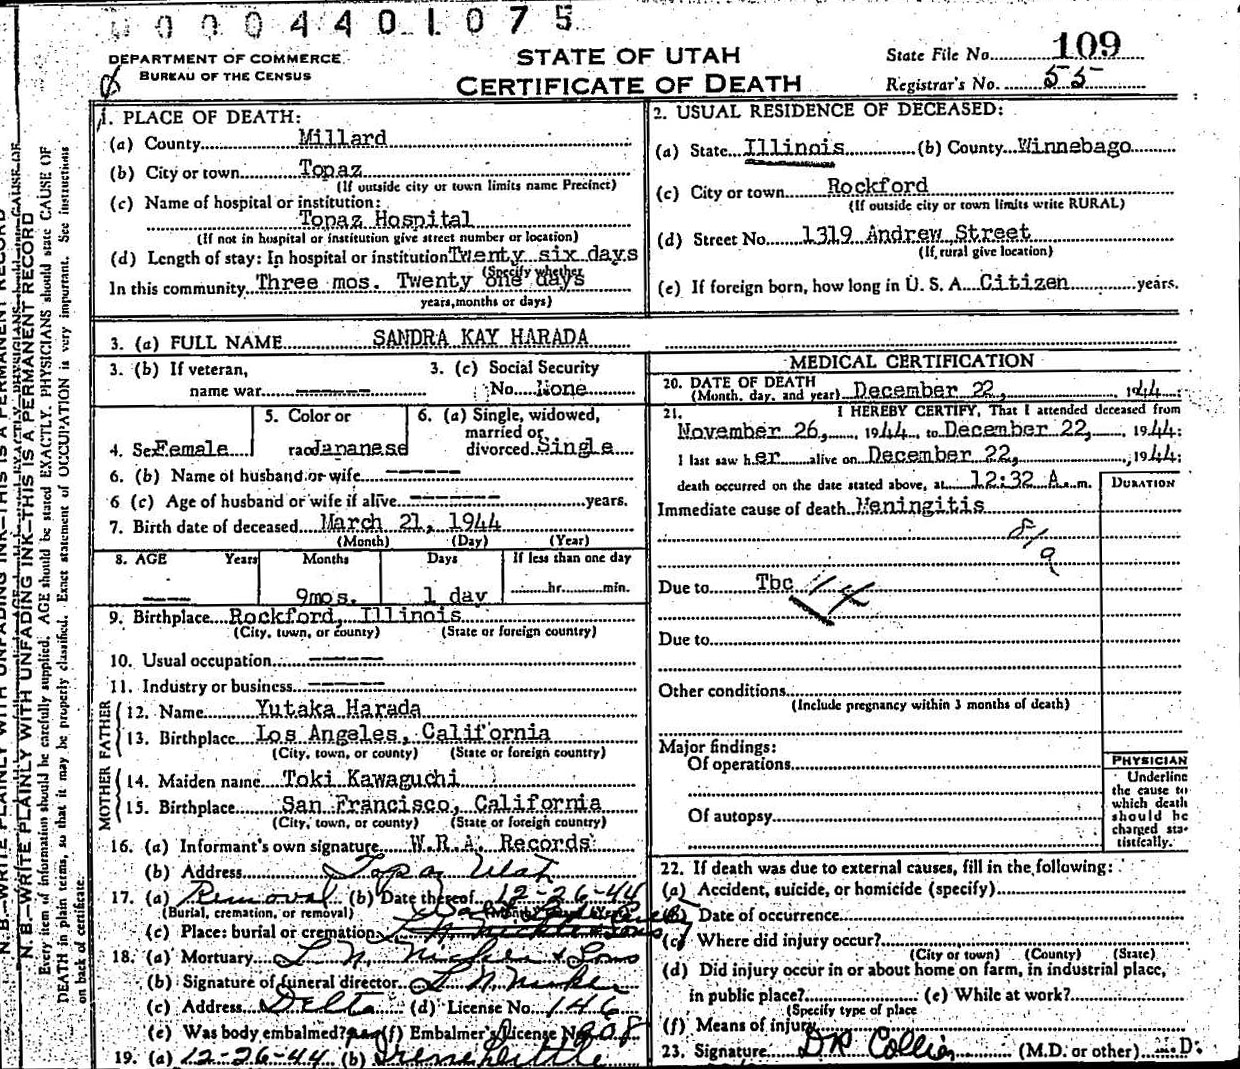 00004401075
DEPARTMENT OF COMMERCE
BUREAU OF THE CENSUS
STATE OF UTAH
CERTIFICATE OF DEATH
State File No. 109
Registrar's No. 55
1. PLACE OF DEATH:
(a) County Millard
(b) City or town Topaz
(If outside city or town limits name Precinct)
(c) Name of hospital or institution:
Topaz Hospital
(If not in hospital or institution give street number or location)
(d) Length of stay: In hospital or institution Twenty six days
(Specify whether
In this community Three mos. Twenty one days
years, months or days)
2. USUAL RESIDENCE OF DECEASED:
(a) State Illinois (b) County Winnebago
(c) City or town Rockford
(If outside city or town limits write RURAL)
(d) Street No. 1319 Andrew Street
(If rural give location)
(e) If foreign born, how long in U. S. A. Citizen years.
3. (a) FULL NAME SANDRA KAY HARADA
3. (b) If veteran,
name war
3. (c) Social Security
No. None
4. Sex Female
5. Color or
race Japanese
6. (a) Single, widowed,
married or
divorced Single
6. (b) Name of husband or wife
6 (c) Age of husband or wife if alive years.
7. Birth date of deceased March 21, 1944
(Month) (Day) (Year)
8. AGE Years Months Days If less than one day
9mos. 1 day hr. min.
9. Birthplace Rockford, Illinois
(City, town, or county) (State or foreign country)
10. Usual occupation
11. Industry or business
FATHER
12. Name Yutaka Harada
13. Birthplace Los Angeles, California
(City, town, or county) (State or foreign country)
MOTHER
14. Maiden name Toki Kawaguchi
15. Birthplace San Francisco, California
(City, town, or county) (State or foreign country)
16. (a) Informant's own signature W.R.A. Records
(b) Address Topaz Utah
17. (a) Removal (b) Date thereof 12-26-44
(Burial, cremation, or removal)
(c) Place: burial or cremation
18. (a) Mortuary
(b) Signature of funeral director
(c) Address Delta (d) License No. 146
(e) Was body embalmed? yes (f) Embalmer's License No. 908
19. (a) 12-26-44 (b)
MEDICAL CERTIFICATION
20. DATE OF DEATH
(Month, day, and year) December 22, 1944:
21. I HEREBY CERTIFY, That I attended deceased from
November 26, 1944, to December 22, 1944:
I last saw her alive on December 22, 1944:
death occurred on the date stated above, at 12:32 A. m.
DURATION
Immediate cause of death Meningitis
Due to Tbc
Due to
Other conditions
(Include pregnancy within 3 months of death)
Major findings:
Of operations
Of autopsy
PHYSICIAN
Underline
the cause to
which death
should be
charged sta-
tistically.
22. If death was due to external causes, fill in the following:
(a) Accident, suicide, or homicide (specify)
(b) Date of occurrence
(c) Where did injury occur?
(City or town) (County) (State)
(d) Did injury occur in or about home on farm, in industrial place,
in public place? (e) While at work?
(Specify type of place
(f) Means of injury
23. Signature DR Collier (M.D. or other) M.D.
N. B.—WRITE PLAINLY WITH UNFADING INK—THIS IS A PERMANENT RECORD
Every item of information should be carefully supplied. AGE should be stated EXACTLY. PHYSICIANS should state CAUSE OF
DEATH in plain terms, so that it may be properly classified. Exact statement of OCCUPATION is very important. See instructions
on back of certificate.